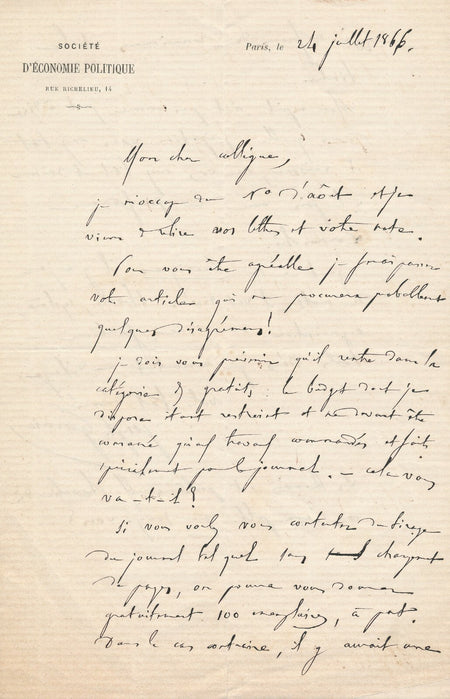 SOCIÉTÉ
D'ÉCONOMIE POLITIQUE
RUE RICHELIEU, 14
Paris, le 24 juillet 1866.
Mon cher collègue,
je m'occupe du No d'août et je
viens de lire vos lettres et votre note.
Pour vous être agréable je ferai passer
votre article qui me procurera probablement
quelques désagréments !
je dois vous prévenir qu'il rentre dans la
catégorie des gratuits, le budget dont je
dispose étant restreint et ne devant être
consacré qu'aux travaux commandés et faits
spécialement pour le journal. – cela vous
va-t-il ?
Si vous voulez vous contenter du tirage
du journal tel quel sans changement
de pages, on pourra vous donner
gratuitement 100 exemplaires, à part.
Dans le cas contraire, il y aurait une